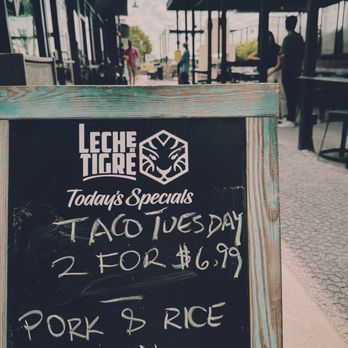 LECHE
TIGRE
Today's Specials
TACO TUESDAY
2 FOR $6.99
PORK & RICE